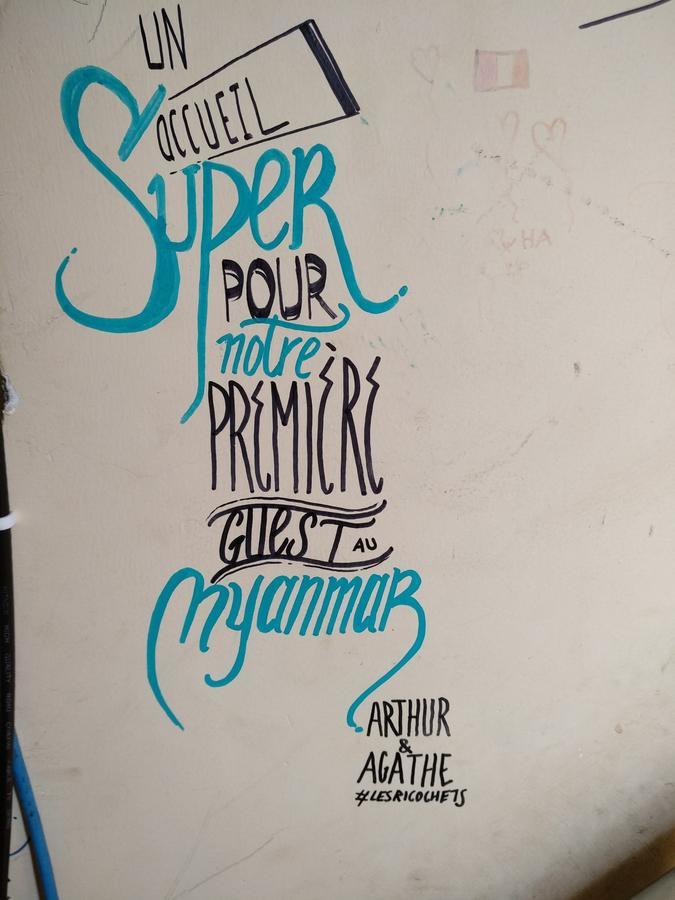 UN
ACCUEIL
Super
POUR
notre
PREMIÈRE
GUEST AU
Myanmar
ARTHUR
&
AGATHE
#LESRICOCHETS